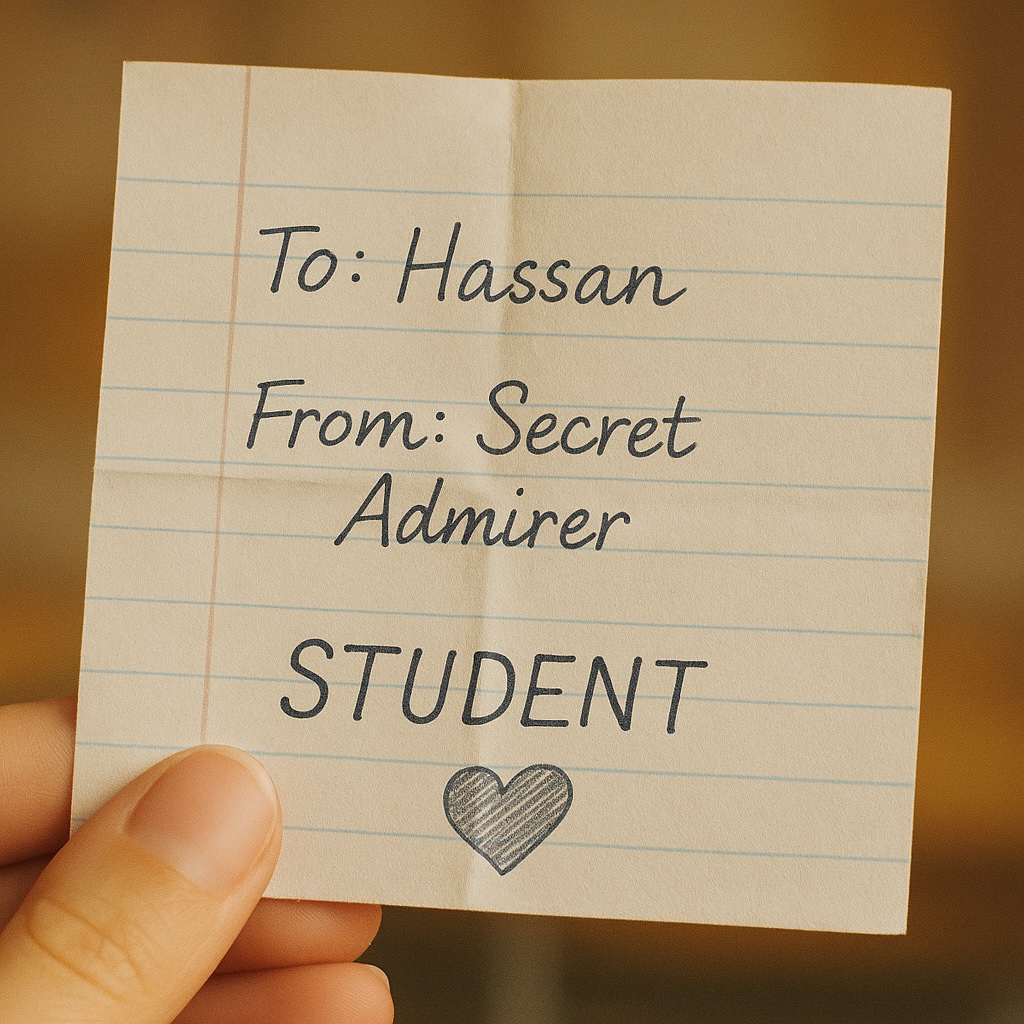 To: Hassan
From: Secret
Admirer
STUDENT